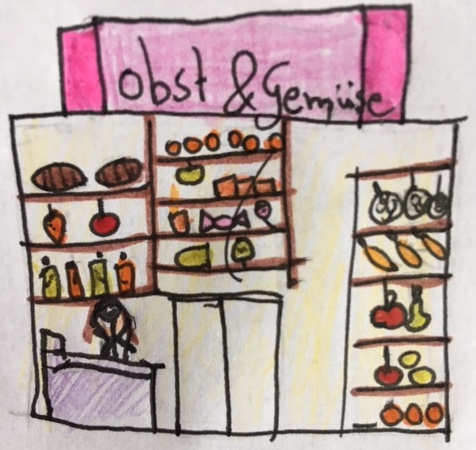 obst & Gemüse